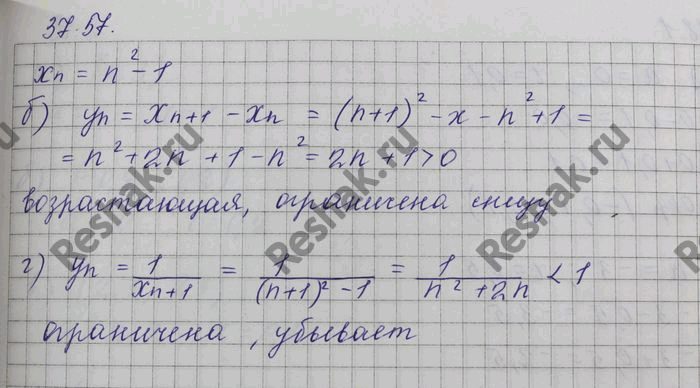 37.57.
xn = n² - 1
б) yn = xn+1 - xn = (n+1)² - x - n² + 1 =
= n² + 2n + 1 - n² = 2n + 1 > 0
возрастающая, ограничена снизу
г) yn = 1/xn+1 = 1/(n+1)² - 1 = 1/n² + 2n < 1
ограничена, убывает
Reshak.ru
Reshak.ru
Reshak.ru
Reshak.ru